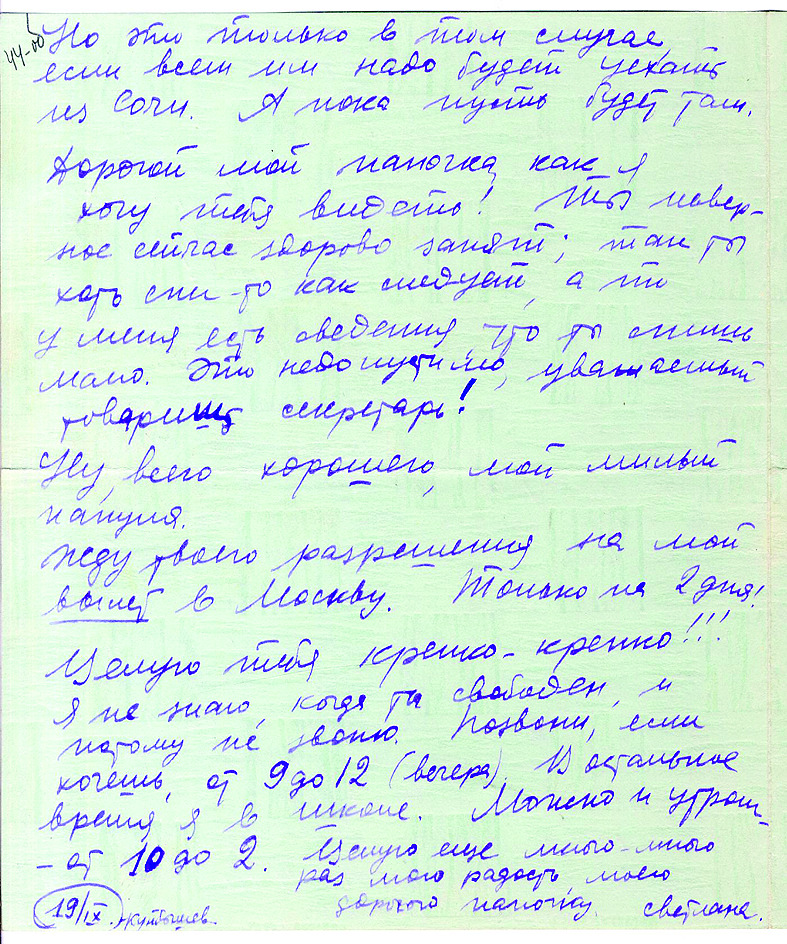 44-об
Но это только в том случае
если всем им надо будет уехать
из Сочи. А пока пусть будет там.
Дорогой мой папочка, как я
хочу тебя видеть! Ты навер-
ное сейчас здорово занят; так ты
хоть спи-то как следует, а то
у меня есть сведения, что ты спишь
мало. Это недопустимо, уважаемый
товарищ секретарь!
Ну, всего хорошего, мой милый
папуля.
Жду твоего разрешения на мой
вылет в Москву. Только на 2 дня!
Целую тебя крепко-крепко!!!
Я не знаю, когда ты свободен, и
потому не звоню. Позвони, если
хочешь, от 9 до 12 (вечера). В остальное
время я в школе. Можно и утром-
- от 10 до 2. Целую еще много-много
раз мою радость моего
дорогого папочку. Светлана.
19/IX. г. Куйбышев.